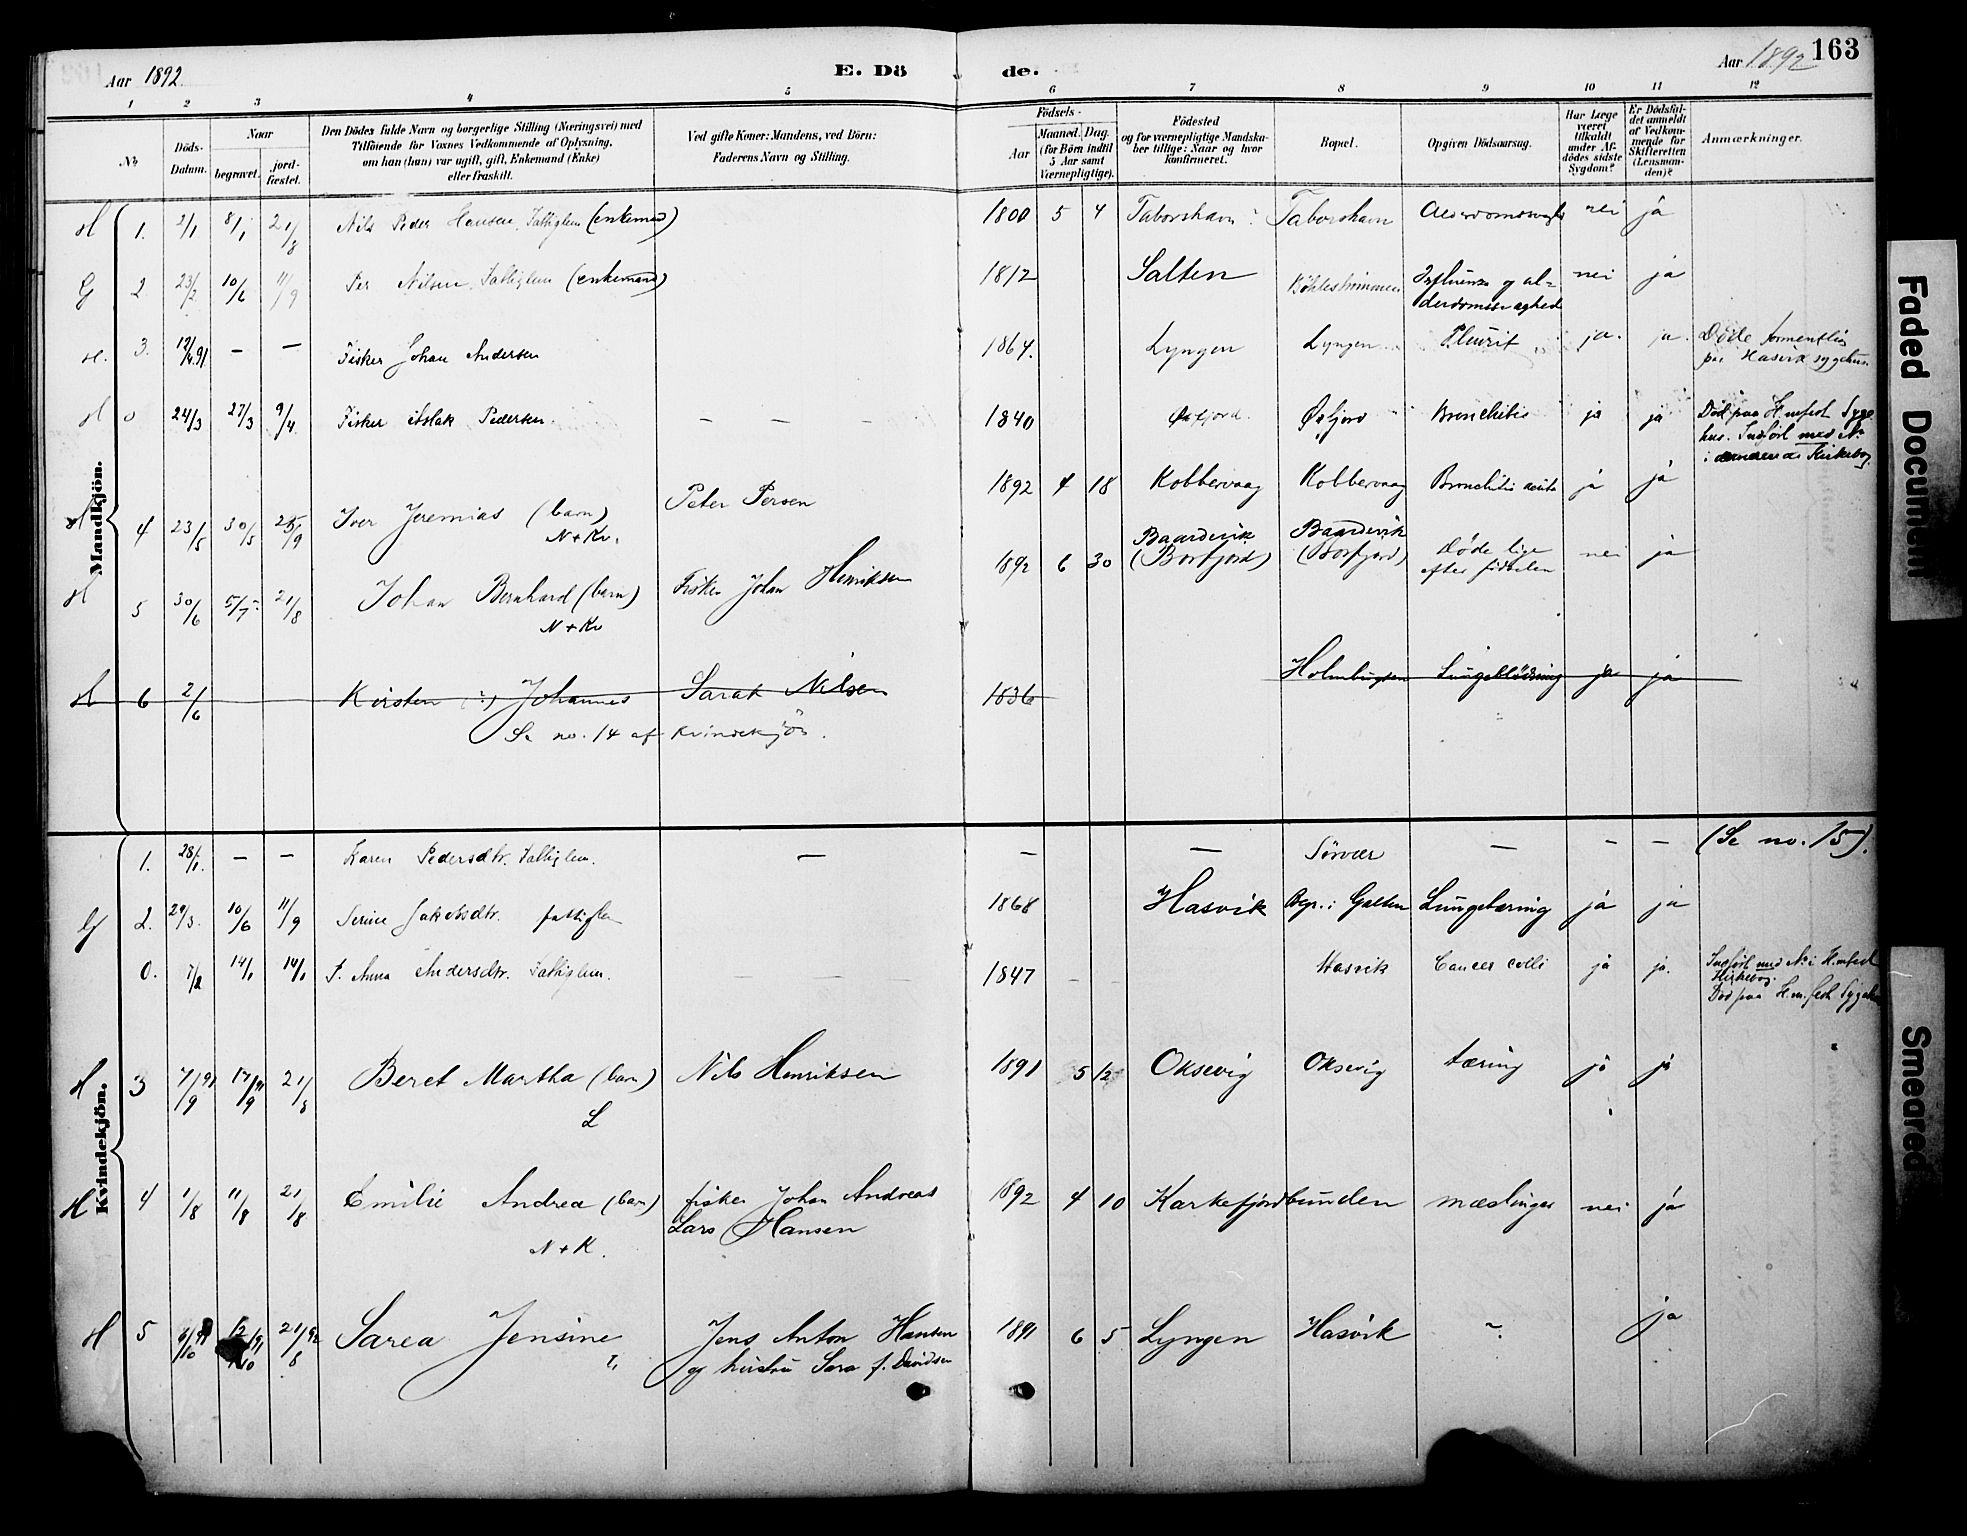 Aar 1892.
E. Dö
de.
Aar 1892
163
1 2 3 4 5 6 7 8 9 10 11 12
No.
Döds-
Datum.
Naar
begravet.
jord-
fæstet.
Den Dödes fulde Navn og borgerlige Stilling (Næringsvei) med
Tilföiende for Voxnes Vedkommende af Oplysning,
om han (hun) var ugift, gift, Enkemand (Enke)
eller fraskilt.
Ved gifte Koner: Mandens, ved Börn:
Faderens Navn og Stilling.
Födsels-
Aar
Maaned. Dag.
(for Börn indtil
5 Aar samt
Værnepligtige).
Födested
og for værnepligtige Mandska-
ber tillige: Naar og hvor
konfirmeret.
Bopæl.
Opgiven Dödsaarsag.
Har Læge
været
tilkaldt
under Af-
dödes sidste
Sygdom?
Er Dödsfal-
det anmeldt
af Vedkom-
mende for
Skifteretten
(Lensman-
den)?
Anmærkninger.
Mandkjön.
H 1. 2/1 8/1 21/8 Nils Peder Hansen, Fattiglem (enkemand) 1800 5 4 Taborshavn Taborshavn nei ja
G 2 23/2 10/6 11/9 Per Nilsen, Fattiglem (enkemand) 1812 Salten Influenza og al-
derdomssvaghed nei ja
H. 3. 12/4.91 — — Fisker Johan Andersen 1864. Lyngen Lyngen Pleurit ja. ja. Döde formentlig
paa Hasvik sygehus.
H 0 24/3 27/3 9/4 Fisker Aslak Pedersen. — — — 1840 Øxfjord. Øxfjord Bronchitis ja ja Död paa H.mfest Syge
hus. Indført med No
i Kirkebog.
H 4 23/5 30/5 25/9 Iver Jeremias (barn)
N+Kv.
Peter Persen 1892 4 18 Kobbervaag Kobbervaag Bronchitis acuta ja ja
H 5 30/6 5/7 21/8 Johan Bernhard (barn)
N+Kv
Fisker Johan Henriksen 1892 6 30 Baardevik
(Borfjord)
Baardevik
(Borfjord)
Döde lige
efter födselen nei ja
H 6 2/6 Kirsten Johannes Sarak Nilsen 1836 Lungeblödning ja ja
Se no. 14 af kvindekjön.
Kvindekjön.
1. 28/1. — — Karen Pedersdtr. Fattiglem. — — — Sörvær — — — (Se no. 15).
G 2. 29/3. 10/6 11/9 Serine Jakobsdtr. fattiglem 1868 Hasvik Begr. i Galten Lungetæring ja ja
0. 14/1 14/1 P. Anna Andersdtr. Fattiglem. — — — 1847 - - Hasvik Cancer colli ja ja. Indført med No i H.mfest
Kirkebog.
Död paa H.m.fest Sygehus
H 3 7/9 91 17/9 91 21/8 Beret Martha (barn)
L
Nils Henriksen 1891 5 12 Oksevig Oksevig tæring ja ja
H 4 1/8 11/8 21/8 Emilie Andrea (barn)
N+K.
fisker Johan Andreas
Lars Hansen 1892 4 10 Karkefjordbunden mæslinger nei ja
H 5 6/10 91 12/10 91 21/8 92 Sarea Jensine
Jens Anton Hansen
og hustru Sara f. Davidsen 1891 6 5 Lyngen Hasvik ~. ja
Faded Document
Smeared